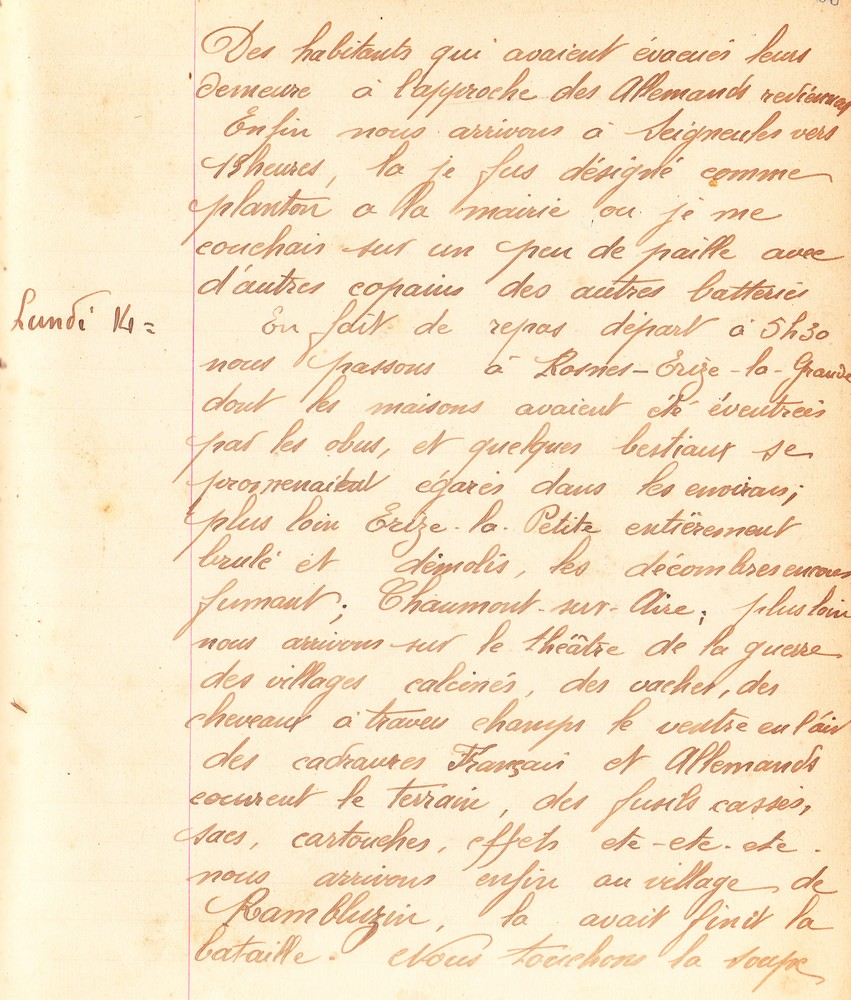 Des habitants qui avaient évacués leurs
demeure à l'approche des Allemands reviennent
Enfin nous arrivons à Seigneules vers
18 heures, la je fus désigné comme
planton a la mairie ou je me
couchais sur un peu de paille avec
d'autres copains des autres batteries
Lundi 14 = En fait de repos départ à 5h30
nous passons à Rosnes-Erize-la-Grande
dont les maisons avaient été éventreés
par les obus, et quelques bestiaux se
promenaient égarés dans les environs;
plus loin Erize-la-Petite entièrement
brulé et démolis, les décombres encore
fumant; Chaumont-sur-Aire; plus loin
nous arrivons sur le théâtre de la guerre
des villages calcinés, des vaches, des
cheveaux à travers champs le ventre en l'air
des cadravres Français et Allemands
couvrent le terrain, des fusils cassés,
sacs, cartouches, effets etc-etc-etc.
nous arrivons enfin au village de
Rambluzin, la avait finit la
bataille. Nous touchons la soupe